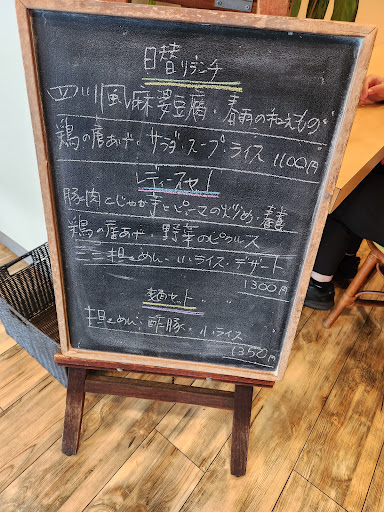 日替りランチ
四川風麻婆豆腐・春雨の和えもの
鶏の唐あげ・サラダ・スープ・ライス 1100円
レディースセット
豚肉とじゃが芋とピーマンの炒め・春巻
鶏の唐あげ・野菜のピクルス
ミニ担々めん・小ライス・デザート
1300円
麺セット
担々めん・酢豚・小ライス
1350円